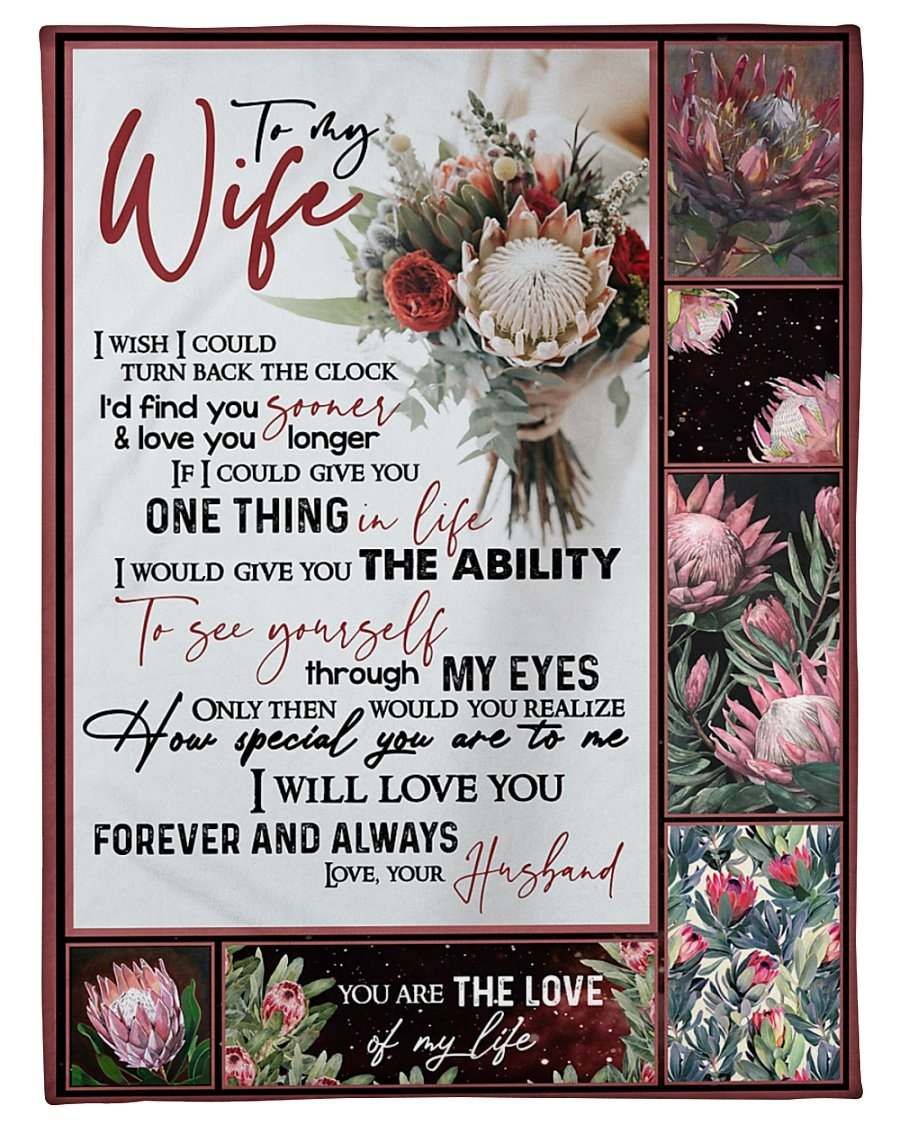 To my
Wife
I WISH I COULD
TURN BACK THE CLOCK
I'd find you sooner
& love you longer
IF I COULD GIVE YOU
ONE THING in life
I WOULD GIVE YOU THE ABILITY
To see yourself
through MY EYES
ONLY THEN WOULD YOU REALIZE
How special you are to me
I WILL LOVE YOU
FOREVER AND ALWAYS
LOVE, YOUR Husband
YOU ARE THE LOVE
of my life